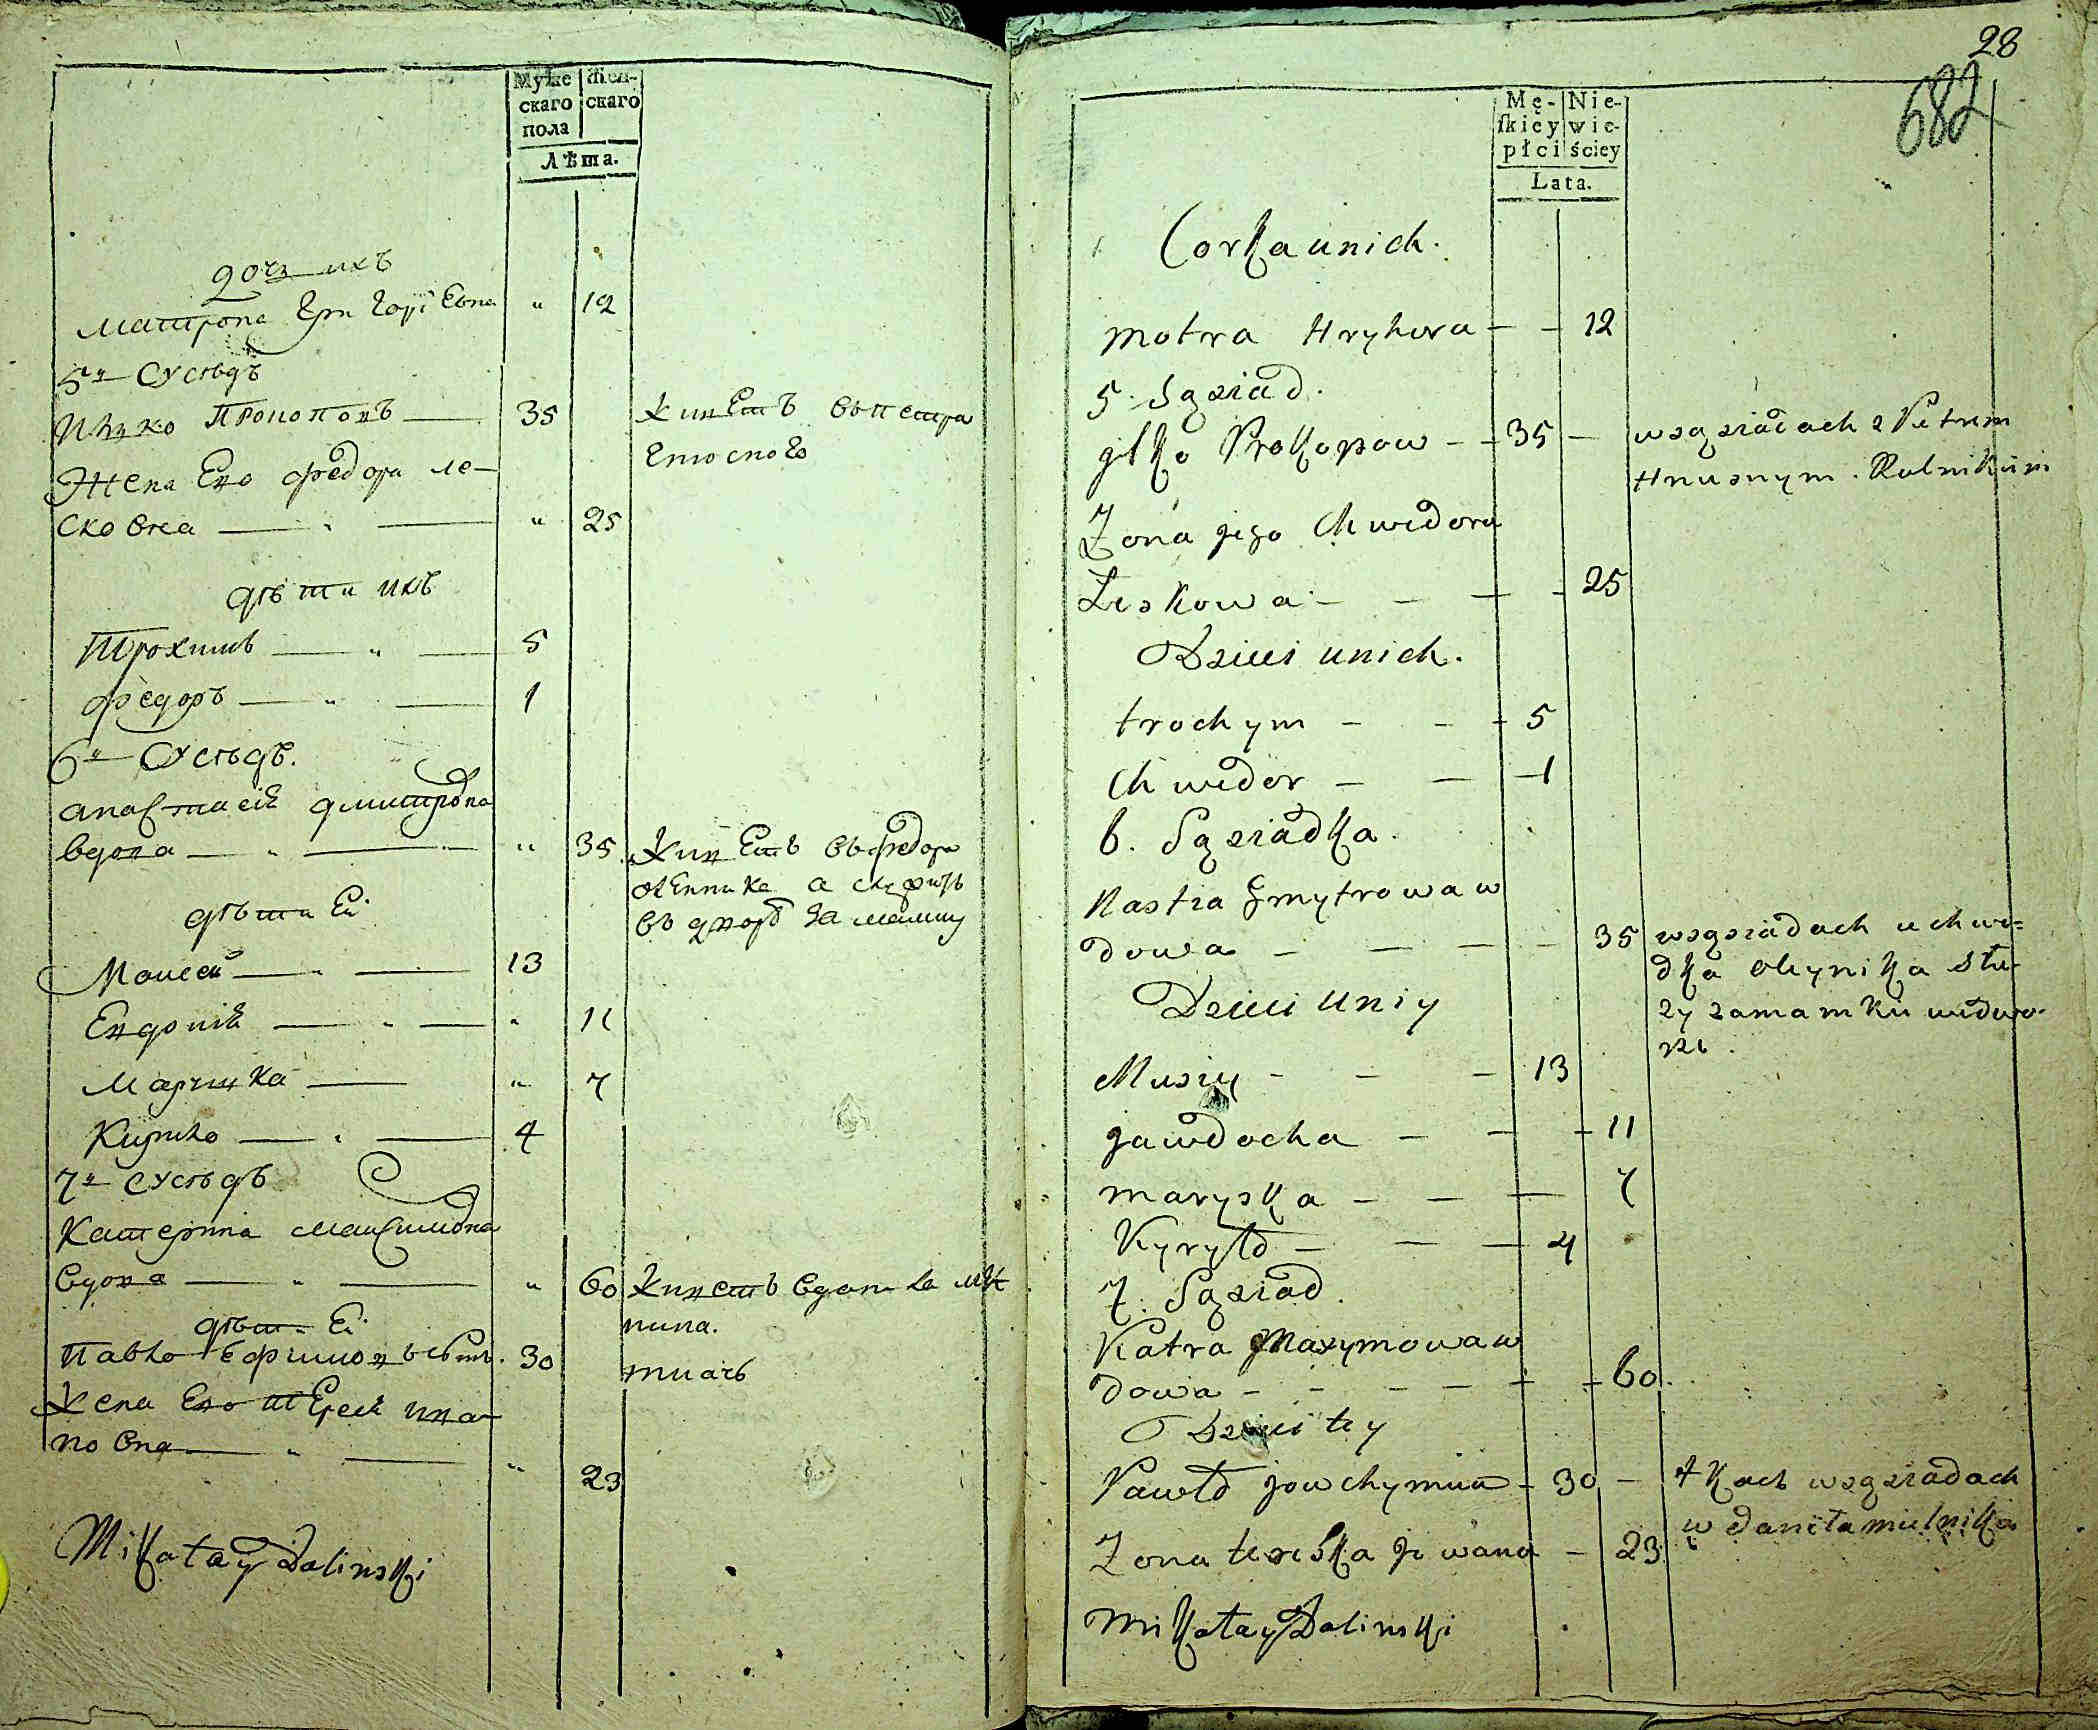 Муже
скаго
пола
Жен-
скаго
Лѣта.
дочь ихъ
Матрона Григорїевна " 12
5й Сусѣдъ
Илько Прокоповъ 35 живетъ въ петра
гнюсного
Жена Его Федора ле-
сковна " 25
дѣти ихъ
Трохимъ " 5
Федоръ " 1
6й Сусѣдъ.
Анастасїя дмитрова
вдова " " 35 живетъ въ федора
олѣйника а служитъ
въ дворѣ за мамку
дѣти Ей
Моисей 13
Евдокїя " 11
Маришка " 7
Кирило 4
7й сусѣдъ
Катерина максимова
вдова " " 60 живетъ въ данила мѣл
ника.
дѣти Ей
Павло Ефимовъ сынъ. 30 ткачь
жена Его Терезїя ива-
новна " " 23
Mikołay Dalinski
28
682
Mę-
skiey
płci
Nie-
wie-
ściey
Lata.
Corka u nich.
Motra Hryhora 12
5. Sąsiad.
Jlko Prokopow 35 w sąsiadach z Petrem
Hnusnym. Rolnikiem
Zona jego Chwedora
Leskowa 25
Dzieci u nich.
Trochym 5
Chwedor 1
6. Sąsiadka.
Nastia Dmytrowa w
dowa 35 w sąsiadach u chwe=
dka oleynika słu-
zy za mamku we dwo-
rze.
Dzieci u niy
Musiy 13
Jawdocha 11
Maryska 7
Kyryło 4
7. Sąsiad.
Katra Maxymowa w
dowa 60.
Dzieci tey
Pawło Jowchymiw 30 Tkacz w sąsiadach
u daniła mielnika
Zona Tereśka Jwana 23
Mikołay Dalinski